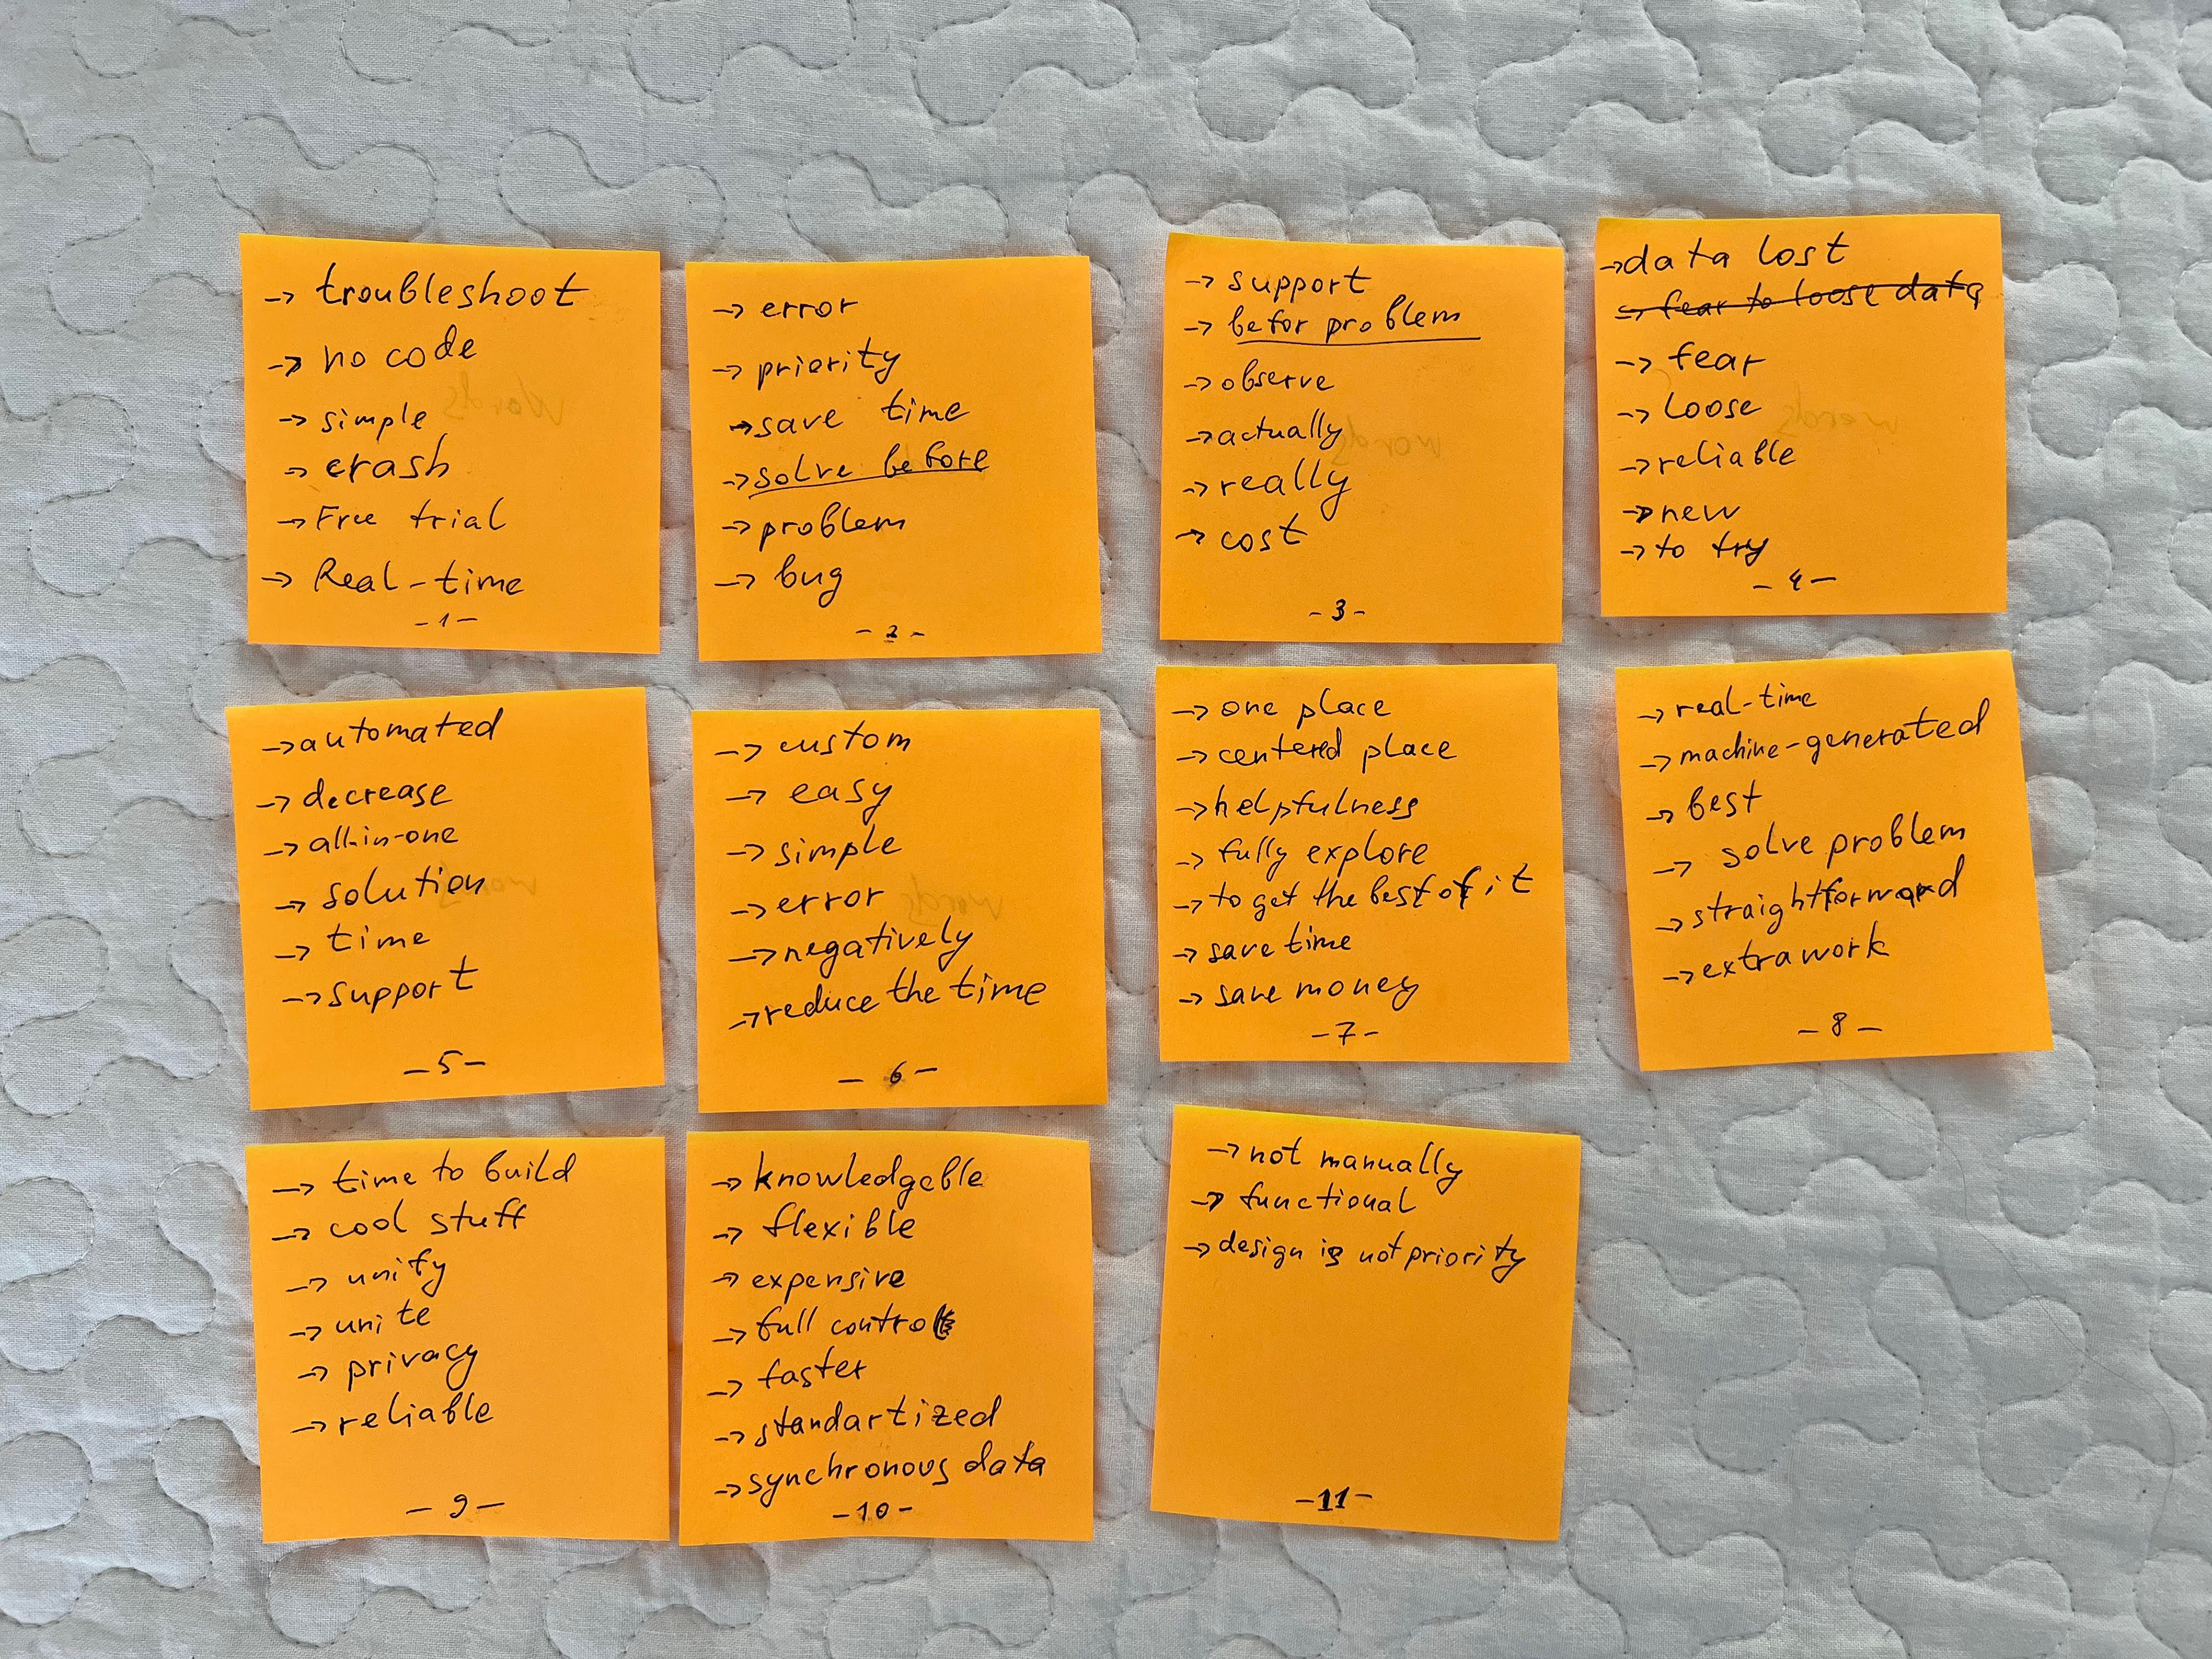 → troubleshoot
→ no code
→ simple
→ crash
→ Free trial
→ Real-time
-1-
→ error
→ priority
→ save time
→ solve before
→ problem
→ bug
-2-
→ support
→ befor problem
→ observe
→ actually
→ really
→ cost
-3-
→ data lost
→ fear to loose data
→ fear
→ loose
→ reliable
→ new
→ to try
-4-
→ automated
→ decrease
→ all-in-one
→ solution
→ time
→ support
-5-
→ custom
→ easy
→ simple
→ error
→ negatively
→ reduce the time
-6-
→ one place
→ centered place
→ helpfulness
→ fully explore
→ to get the best of it
→ save time
→ save money
-7-
→ real-time
→ machine-generated
→ best
→ solve problem
→ straightforward
→ extra work
-8-
→ time to build
→ cool stuff
→ unify
→ unite
→ privacy
→ reliable
-9-
→ knowledgeble
→ flexible
→ expensive
→ full control
→ faster
→ standartized
→ synchronous data
-10-
→ not manually
→ functional
→ design is not priority
-11-